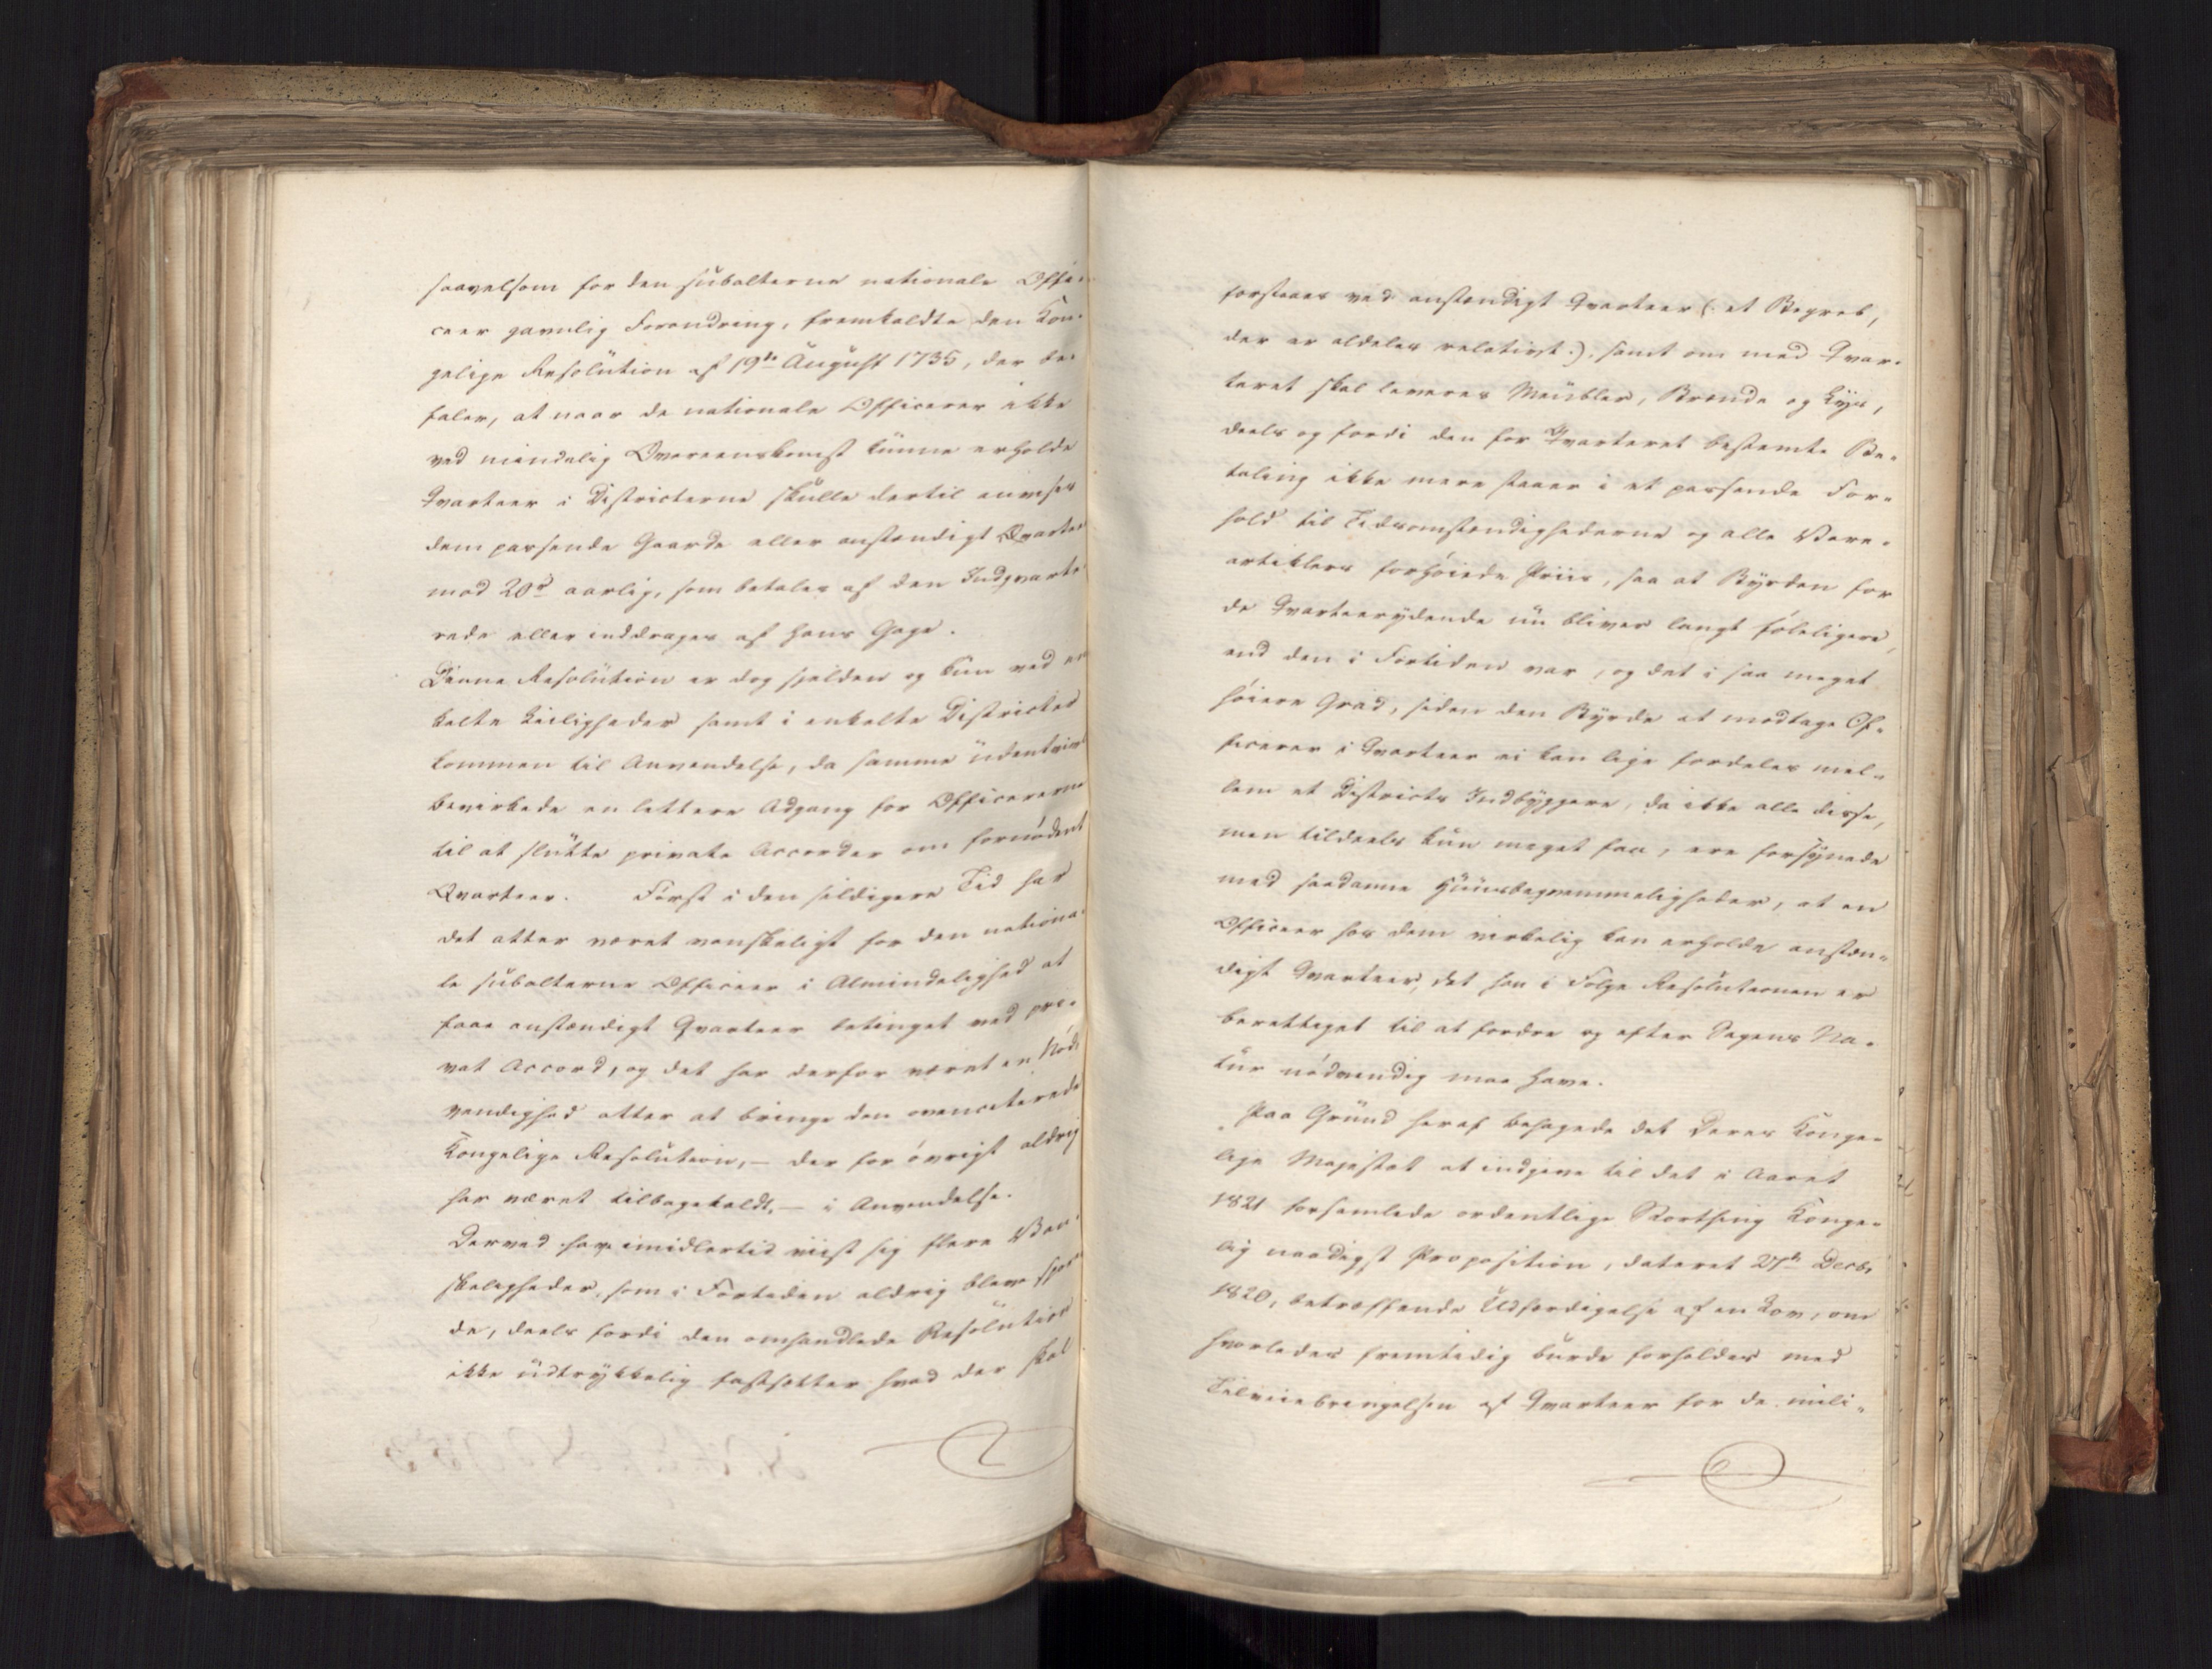 saavelsom for den subalterne nationale Offi-
ceer gavnlig Forandring, fremkaldte den Kon-
gelige Resolution af 19de August 1735, der be-
faler, at naar de nationale Officerer ikke
ved mindelig Overeenskomst kunne erholde
Qvarteer i Districterne skulle dertil anvises
dem passende Gaarde eller anstændigt Qvarteer
mod 20 rd aarlig, som betales af den Indqvarte-
rede eller inddrages af hans Gage.
Denne Resolution er dog sjelden og kun ved en-
kelte Leiligheder samt i enkelte Districter
kommen til Anvendelse, da samme udentvivl
bevirkede en lettere Adgang for Officererne
til at slutte private Accorder om fornødent
Qvarteer. Først i den sildigere Tid har
det atter været vanskeligt for den nationa-
le subalterne Officeer i Almindelighed at
faae anstændigt Qvarteer betinget ved pri-
vat Accord, og det har derfor været en Nød-
vendighed atter at bringe den ovenciterede
Kongelige Resolution, — der for øvrigt aldrig
har været tilbagekaldt, — i Anvendelse.
Derved har imidlertid viist sig flere Van-
skeligheder, som i Fortiden aldrig bleve spore-
de, deels fordi den omhandlede Resolution
ikke udtrykkelig fastsætter hvad der skal
forstaaes ved anstændigt Qvarteer (: et Begreb,
der er aldeles relativt :), samt om med Qvar-
teret skal leveres Meubler, Brænde og Lys,
deels og fordi den for Qvarteret bestemte Be-
taling ikke mere staaer i et passende For-
hold til Tidsomstændighederne og alle Vare-
artiklers forhøiede Priis, saa at Byrden for
de Qvarteerydende nu bliver langt føleligere,
end den i Fortiden var, og det i saa meget
høiere Grad, siden den Byrde at modtage Of-
ficerer i Qvarteer ei kan lige fordeles mel-
lem et Districts Indbyggere, da ikke alle disse,
men tildeels kun meget faa, ere forsynede
med saadanne Huusbeqvemmeligheder, at en
Officeer hos dem virkelig kan erholde anstæn-
digt Qvarteer, det han i Følge Resolutionen er
berettiget til at fordre og efter Sagens Na-
tur nødvendig maa have.
Paa Grund heraf behagede det Deres Konge-
lige Majestæt at indgive til det i Aaret
1821 forsamlede ordentlige Storthing Konge-
lig naadigst Proposition, dateret 27de Decbr
1820, betræffende Udfærdigelse af en Lov, om
hvorledes fremtidig burde forholdes med
Tilveiebringelsen af Qvarteer for de mili-